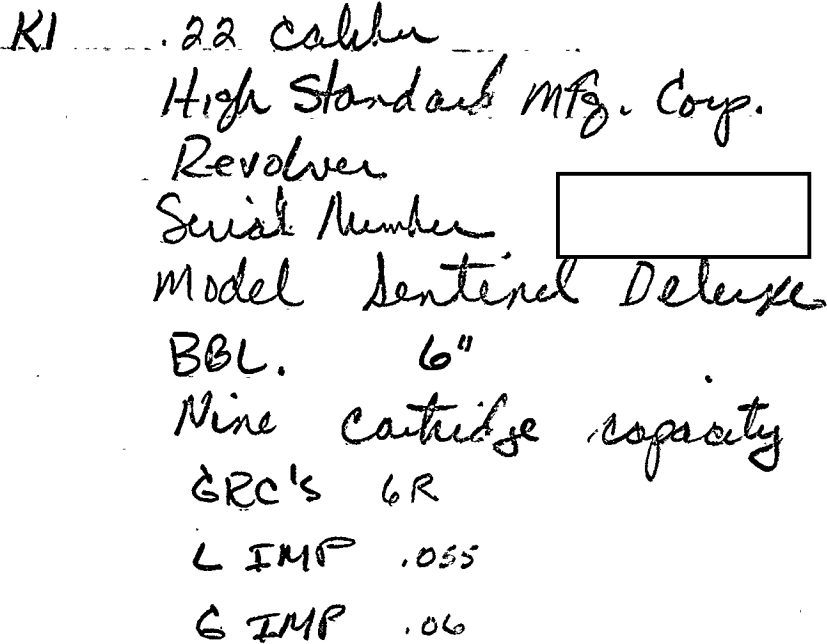 K1 .22 caliber
High Standard Mfg. Corp.
Revolver
Serial Number
Model Sentinel Deluxe
BBL. 6"
Nine cartridge capacity
GRC's 6R
L IMP .055
G IMP .06